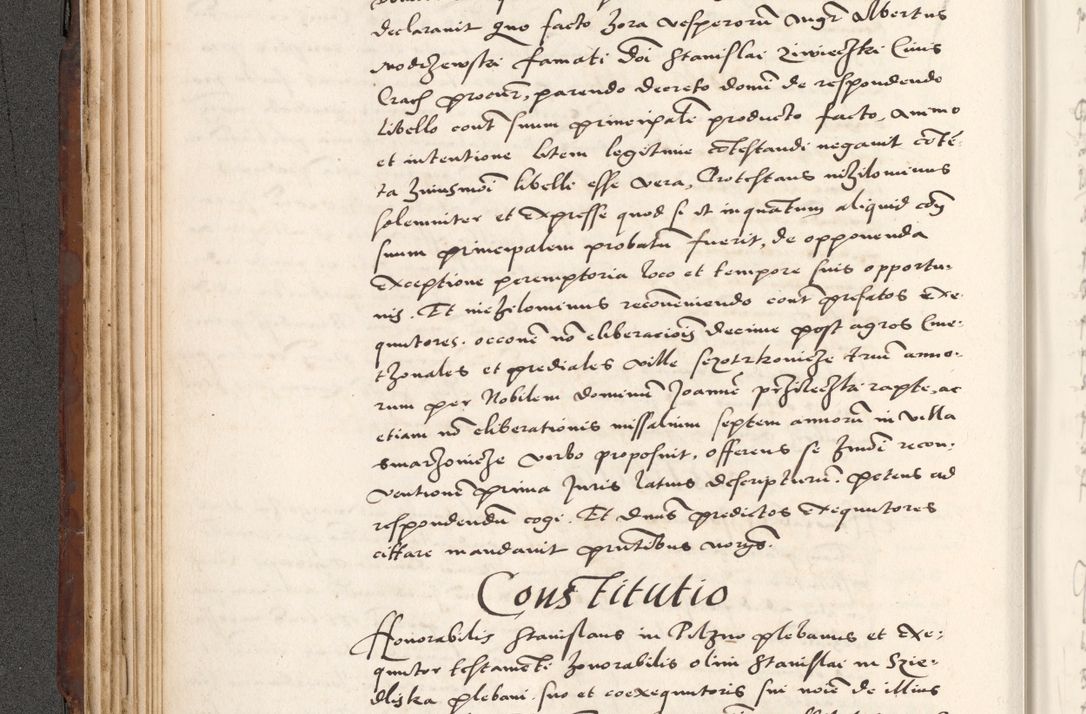 declaravit Quo facto hora vesperorum mgr Albertus
Modrzewski famati domini Stanislai Ziwieczski Civis
Crac procur, parendo decreto domini de respondendo
libello contra suum principalem producto facto, animo
et intentione litem legitime contestandi negavit conten-
ta huiusmodi libelli esse vera, Protestans nihilominus
solemniter et expresse quod si et inquantum aliquid contra
suum principalem probatum fuerit, de opponenda
exceptione peremptoria loco et tempore suis opportu-
nis. Et nichilominus reconveniendo contra prefatos exe-
quutores. occone non eliberacionis decime post agros Cme-
thonales et prediales ville trium anno-
rum per Nobilem dominum Joannem rapte, ac
etiam non eliberationis missalium septem annorum in villa
verbo proposuit, offerens se huiusmodi recon-
ventionem prima Juris latius descripturum. petens ad
respondendum cogi. Et dnus predictos exequutores
cittare mandavit prntibus
Constitutio
Honorabilis Stanislaus in Pilzno plebanus et exe-
quutor testamenti honorabilis olim Stanislai in Szie-
dliska plebani. suo et coexequutoris sui noie de illius